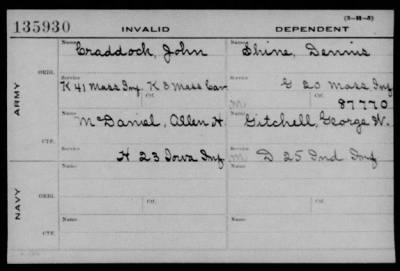 (3-11-3)
135930 INVALID DEPENDENT
Name Craddock, John Name Shine, Dennis
ARMY
ORIG. Service K 41 Mass Inf. K 3 Mass Cav Service G 20 Mass Inf
Ctf. Ctf. 87770
Name McDaniel, Allen H. Name Gitchell, George W.
CTF. Service H 23 Iowa Inf Service D 25 Ind Inf
NAVY
ORIG. Name Ctf. Name Ctf.
CTF. Name Name